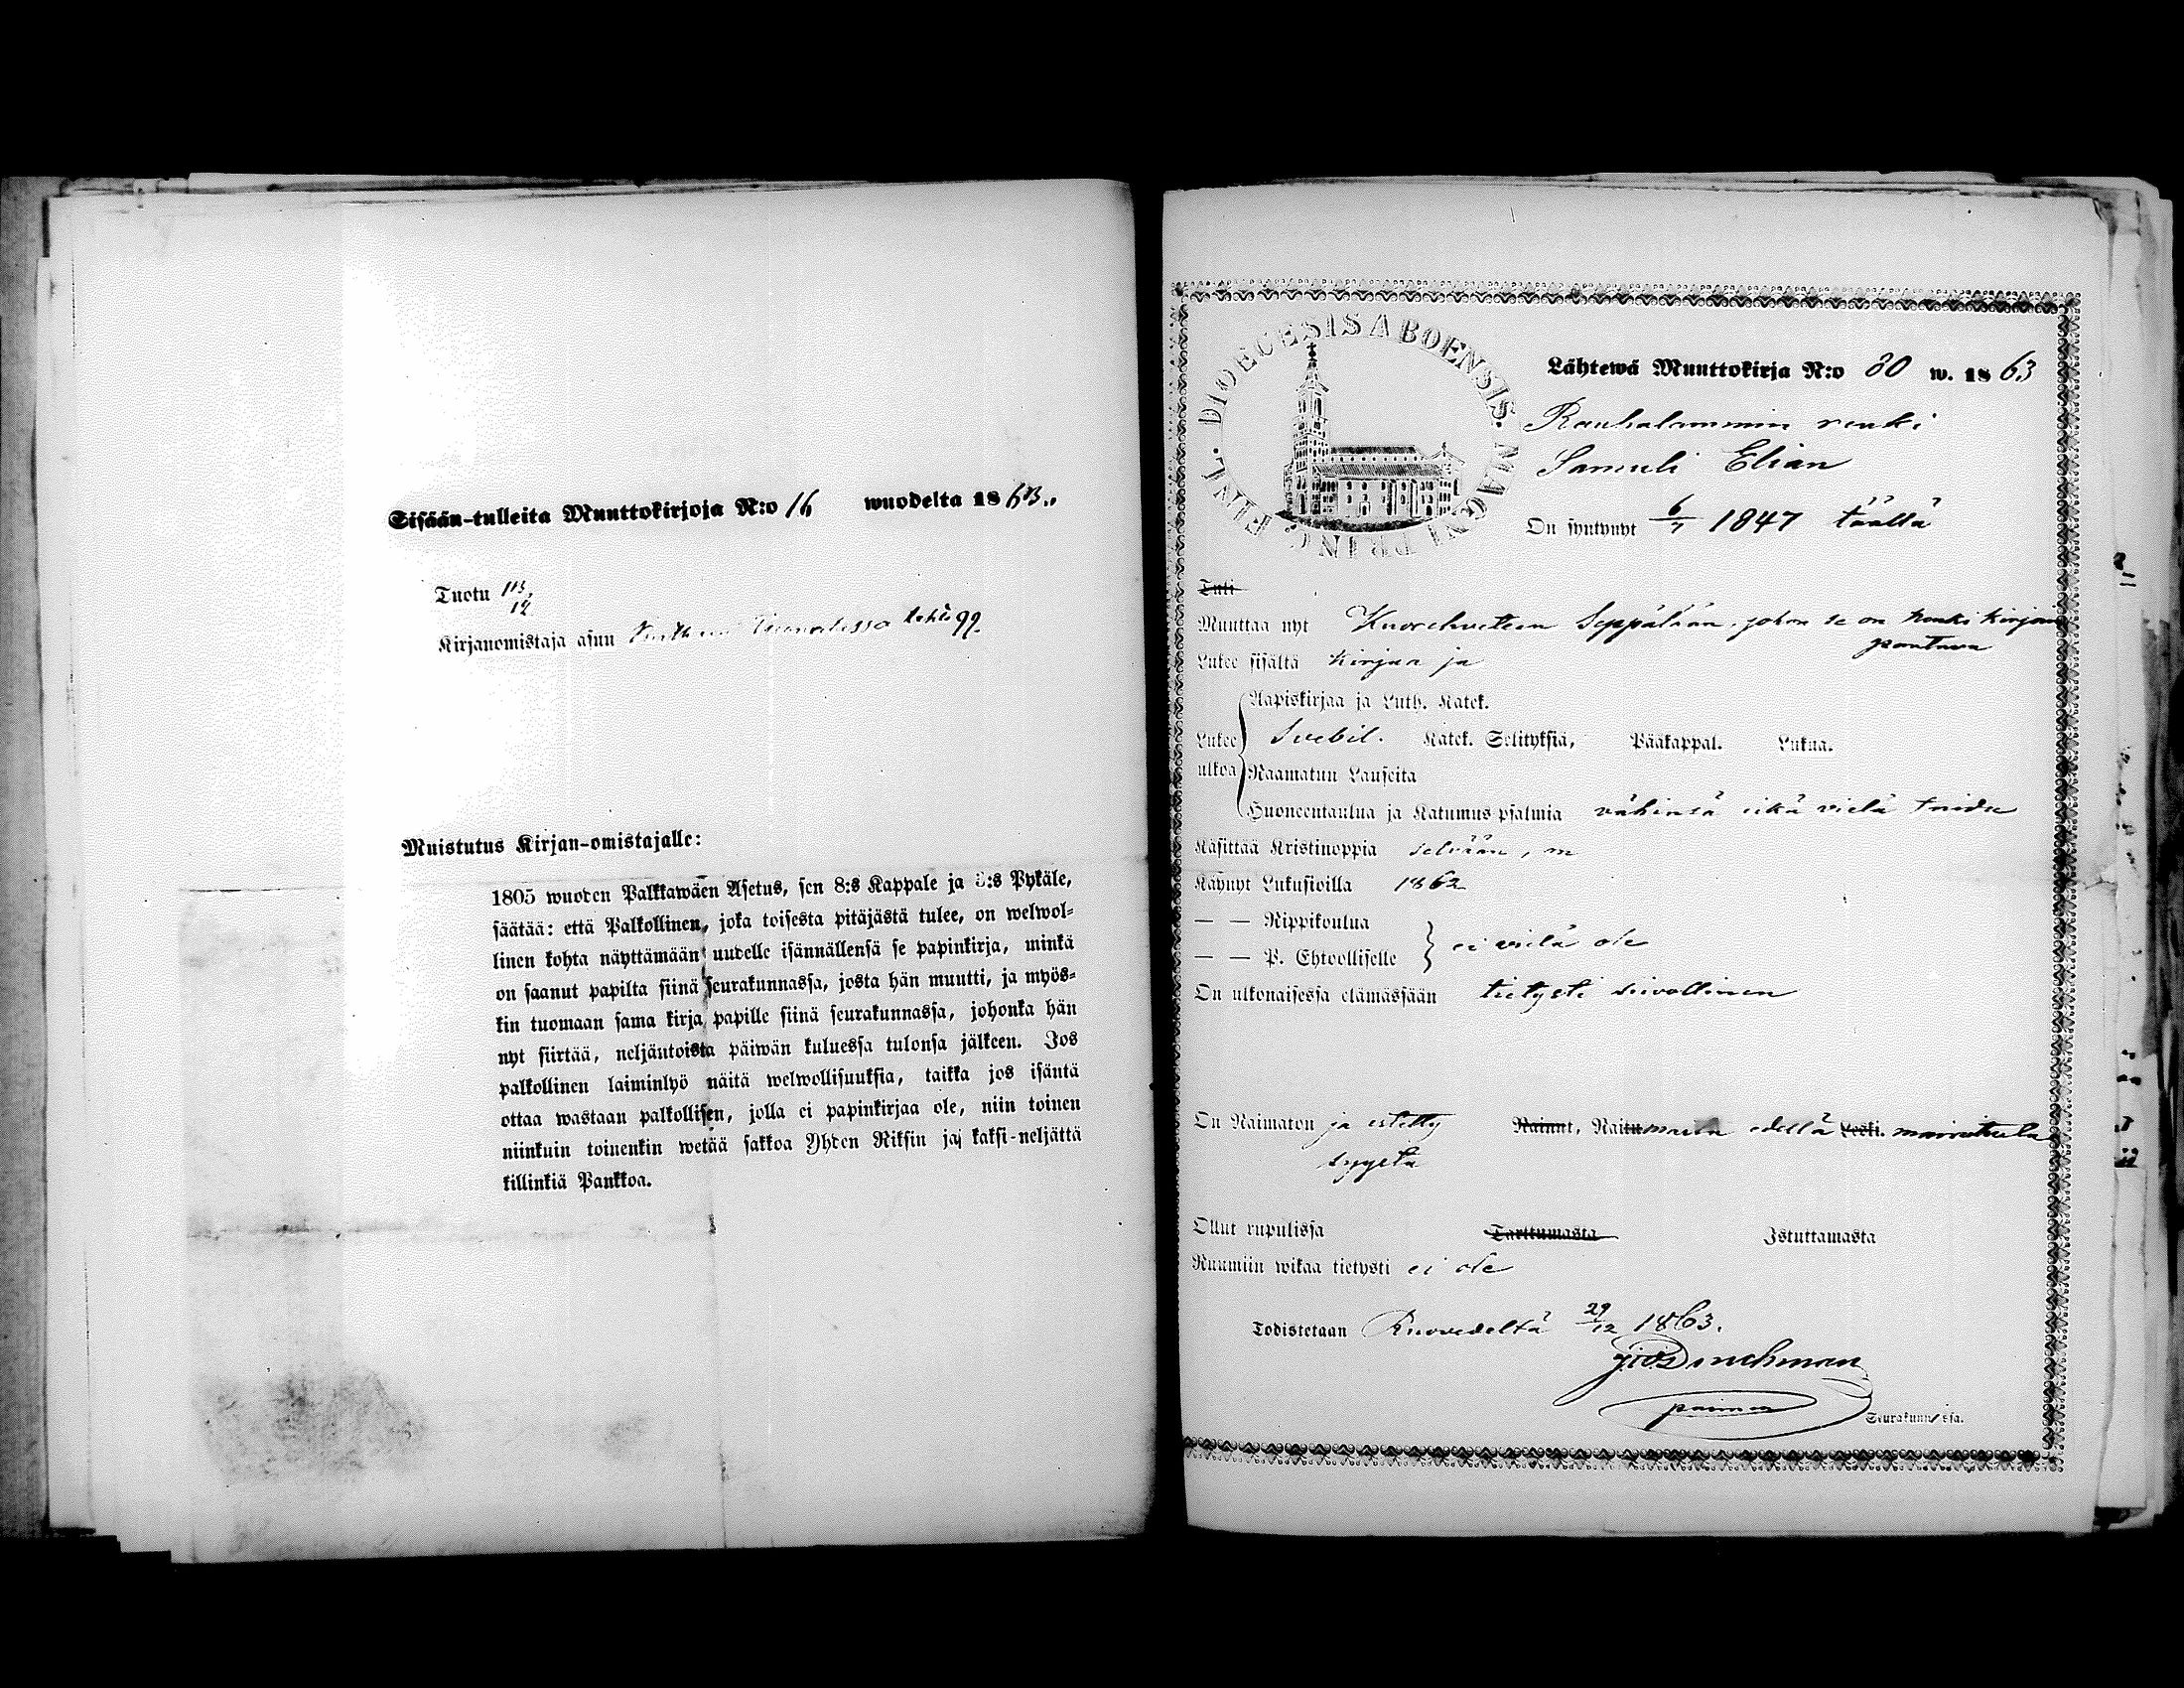 Sisään-tulleita Muuttokirjoja N:o 16 wuodelta 1863.
Tuotu
Kirjanomistaja asuu
Muistutus Kirjan-omistajalle:
1805 wuoden Palkkawäen Asetus, sen 8:s Kappale ja :s Pykäle,
säätää: että Palkollinen, joka toisesta pitäjästä tulee, on welwol-
linen kohta näyttämään uudelle isännällensä se papinkirja, minkä
on saanut papilta siinä seurakunnassa, josta hän muutti, ja myös-
kin tuomaan sama kirja papille siinä seurakunnassa, johonka hän
nyt siirtää, neljäntoista päiwän kuluessa tulonsa jälkeen. Jos
palkollinen laiminlyö näitä welwollisuuksia, taikka jos isäntä
ottaa wastaan palkollisen, jolla ei papinkirjaa ole, niin toinen
niinkuin toinenkin wetää sakkoa Yhden Riksin ja kaksi-neljättä
killinkiä Pankkoa.
DIOECESIS ABOENSIS. MAGNI PRINC. FINL.
Lähtewä Muuttokirja N:o 80 w. 1863
Rauhalammin renki
Samuli Elian
On syntynyt 6/7 1847 täällä
Tuli
Muuttaa nyt Kuorehveteen Seppälään, johon se on henki kirjoin
pantava
Lukee sisältä kirjaa ja
Aapiskirjaa ja Luth. Katek.
Lukee ulkoa Svebil. Katek. Selityksiä, Pääkappal. Lukua.
Raamatun Lauseita
Huoneentaulua ja Katumus psalmia vähinsä eikä vielä taida
Käsittää Kristinoppia selvään,
Käynyt Lukusioilla 1862
— — Rippikoulua
— — P. Ehtoolliselle ei vielä ole
On ulkonaisessa elämässään tietysti siivollinen
On Naimaton ja estetty Nainut, edellä Leski. mainitusta
syystä
Ollut rupulissa Tarttumasta Istuttamasta
Ruumiin wikaa tietysti ei ole
Todistetaan Ruovedeltä 29/12 1863.
Seurakunnassa.